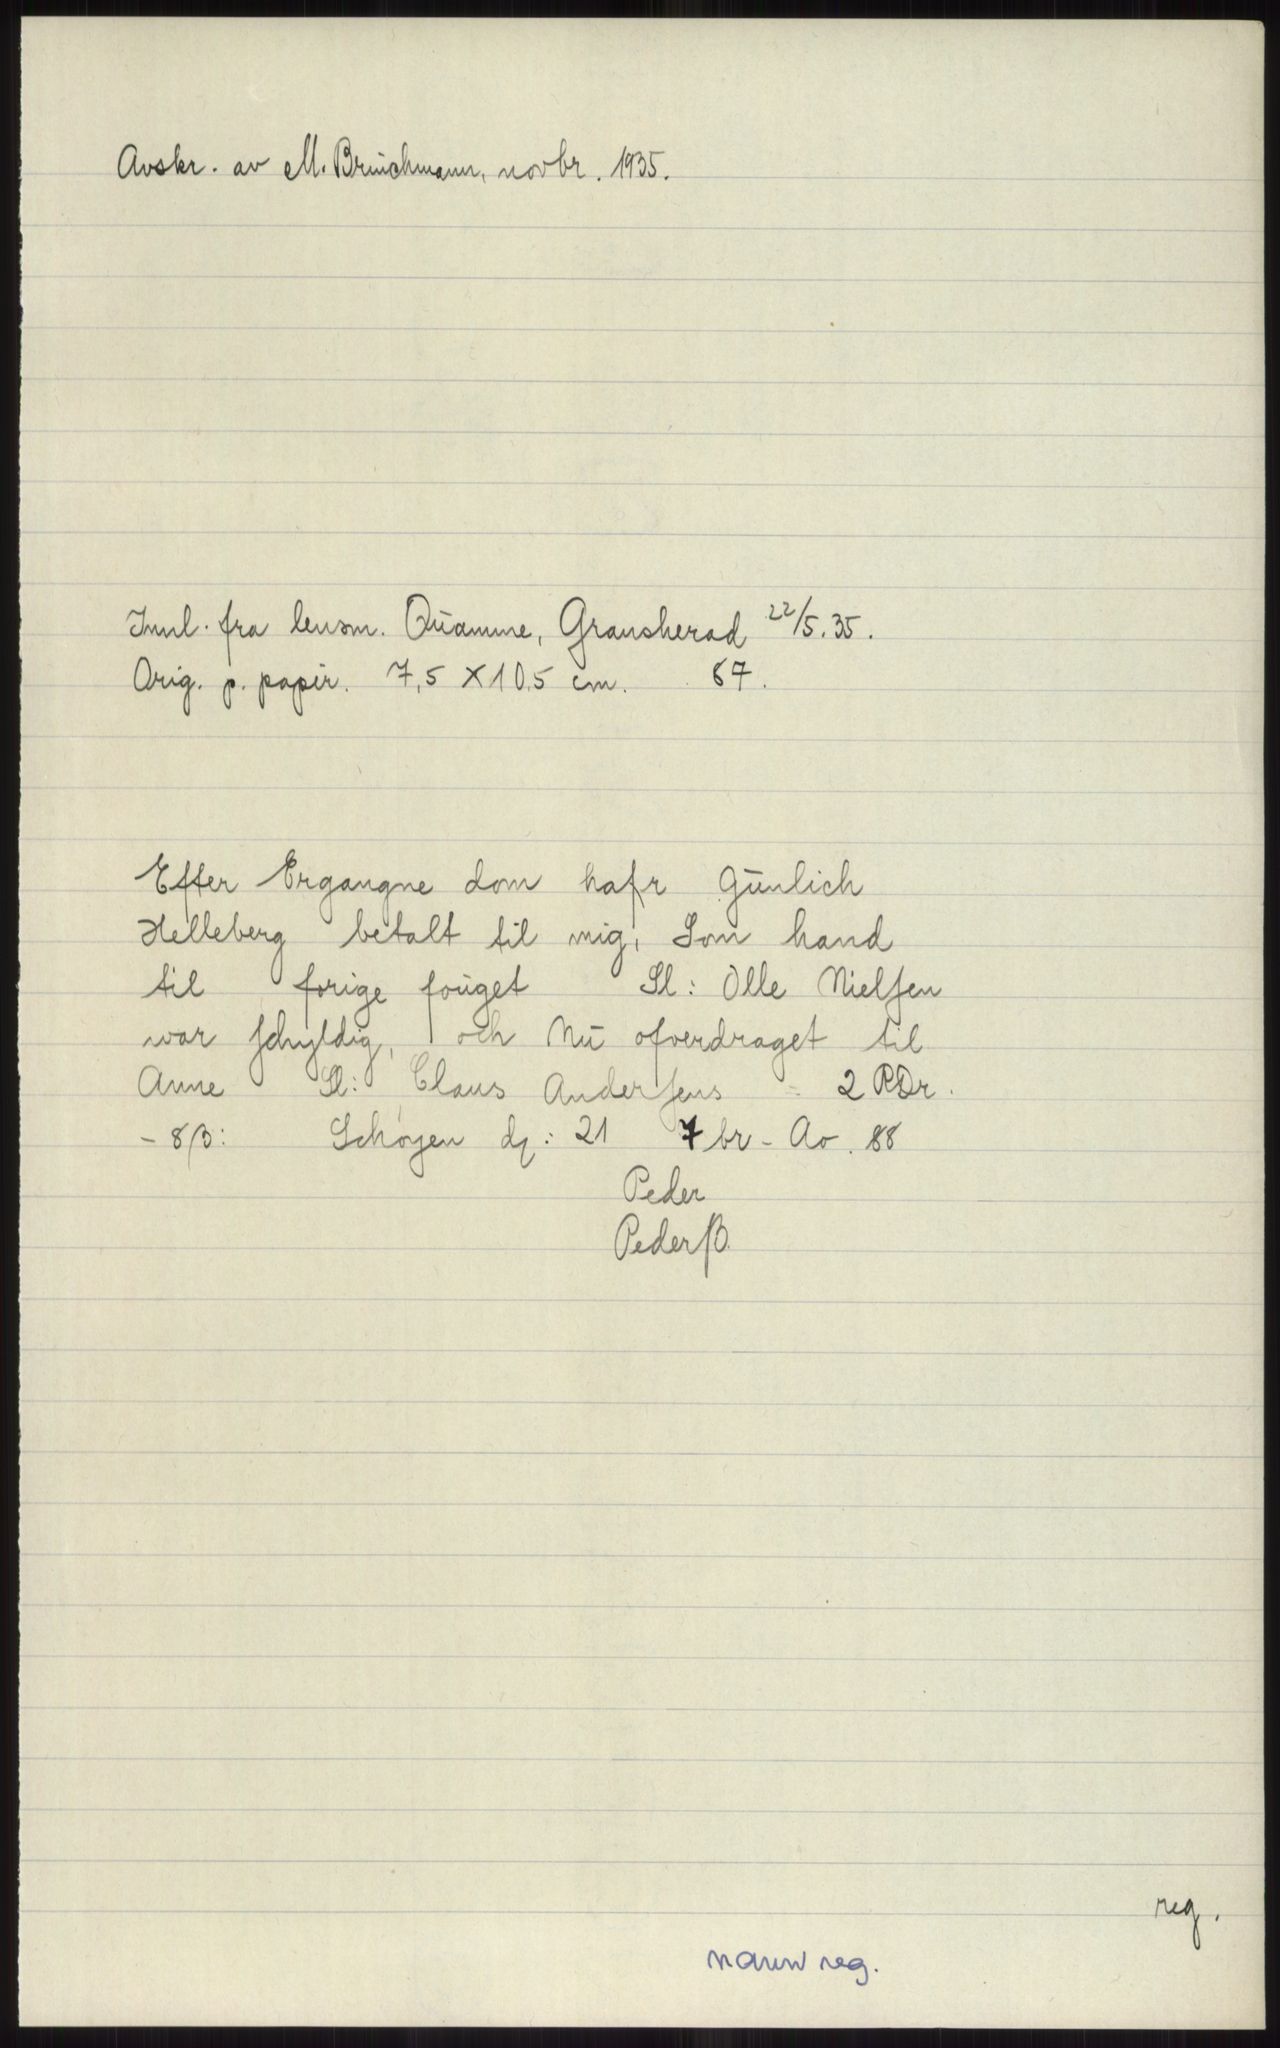 Avskr. av M. Brüchmann, novbr. 1935.
Innl. fra lensm. Qŭamme, Gransherad 22/5.35.
Orig. p. papir. 7,5 X 10,5 cm. 67.
Efter Ergangne dom hafr Gŭnlich
Helleberg betalt til mig, Som hand
til forige foŭget Sl: Olle Nielsen
war schyldig, och Nŭ ofverdraget til
Anne Sl: Claus Andersens - 2 RDr.
- 8 β: Schoyen dȷ: 21 7br - Ao. 88
Peder
Pederß.
reg.
navnreg.